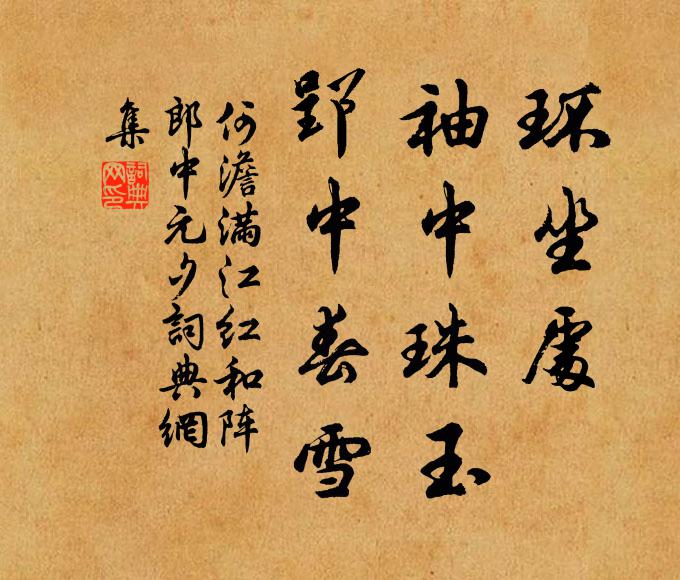 环坐處
袖中珠玉
郢中春雪
何澹满江红和陈
郎中元夕詞典網
集
詞典
网印